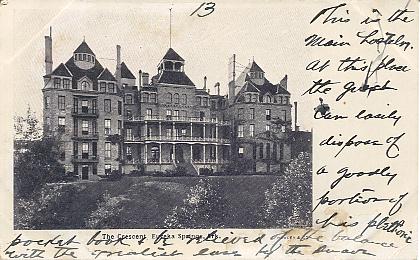 13
This is the
Main Hostelry.
At this place
the guest
Can easily
dispose of
a goodly
portion of
his plethoric
The Crescent, Eureka Springs, Ark.
pocket book & be relieved of the balance
with the greatest ease by the